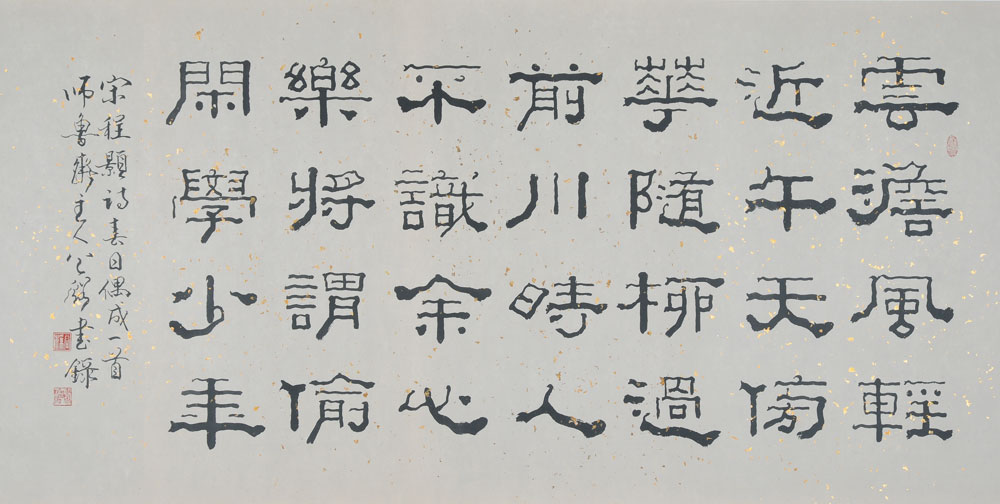 雲澹風輕
近午天傍
華隨柳過
前川時人
不識余心
樂將謂偷
閑學少年
宋程顥詩春日偶成一首
师魯齋主人公啟书錄